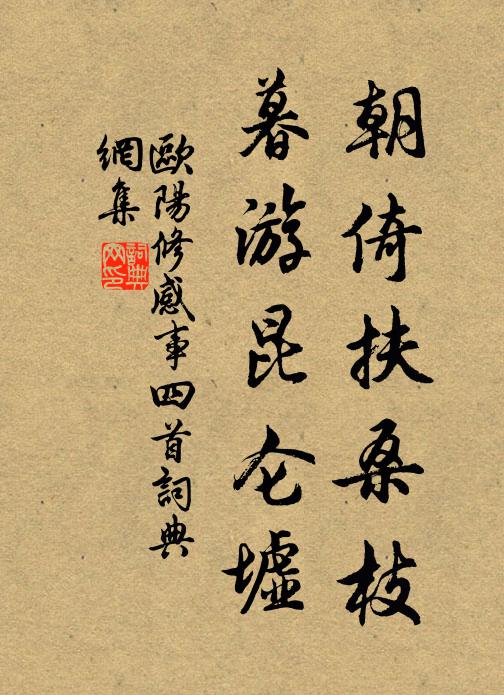 朝倚扶桑枝
暮游昆仑墟
歐陽修感事四首詞典
網集
詞典
网印